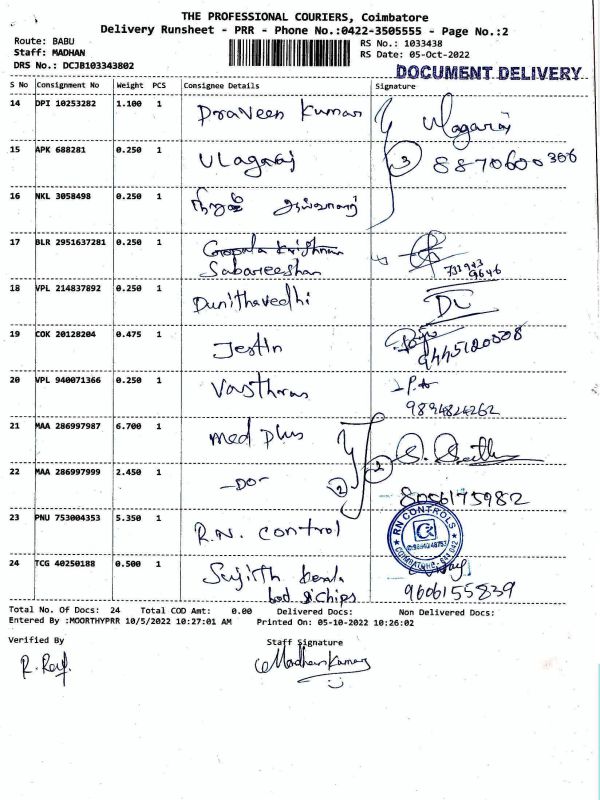 THE PROFESSIONAL COURIERS, Coimbatore
Delivery Runsheet - PRR - Phone No.:0422-3505555 - Page No.:2
Route: BABU
Staff: MADHAN
DRS No.: DCJB103343802
RS No.: 1033438
RS Date: 05-Oct-2022
DOCUMENT DELIVERY
S No Consignment No Weight PCS Consignee Details Signature
14 DPI 10253282 1.100 1 Praveen Kumar Ulagaraj
15 APK 688281 0.250 1 Ulagaraj 3 8870600306
16 NKL 3058498 0.250 1
17 BLR 2951637281 0.250 1 Gopala Krishnan
Sabareeshan
18 VPL 214837892 0.250 1 Dunithavedhi
19 COK 20128204 0.475 1 Jestin 9445120008
20 VPL 940071366 0.250 1 9894824262
21 MAA 286997987 6.700 1 Med Plus
22 MAA 286997999 2.450 1 -DO- 2 2 8056175982
23 PNU 753004353 5.350 1 R.N. Control RN CONTROLS
24 TCG 40250188 0.500 1 Sujith Kerala
hot chips 9606155839
Total No. Of Docs: 24 Total COD Amt: 0.00 Delivered Docs: Non Delivered Docs:
Entered By :MOORTHYPRR 10/5/2022 10:27:01 AM Printed On: 05-10-2022 10:26:02
Verified By Staff Signature
R. Raj. Madhankumar